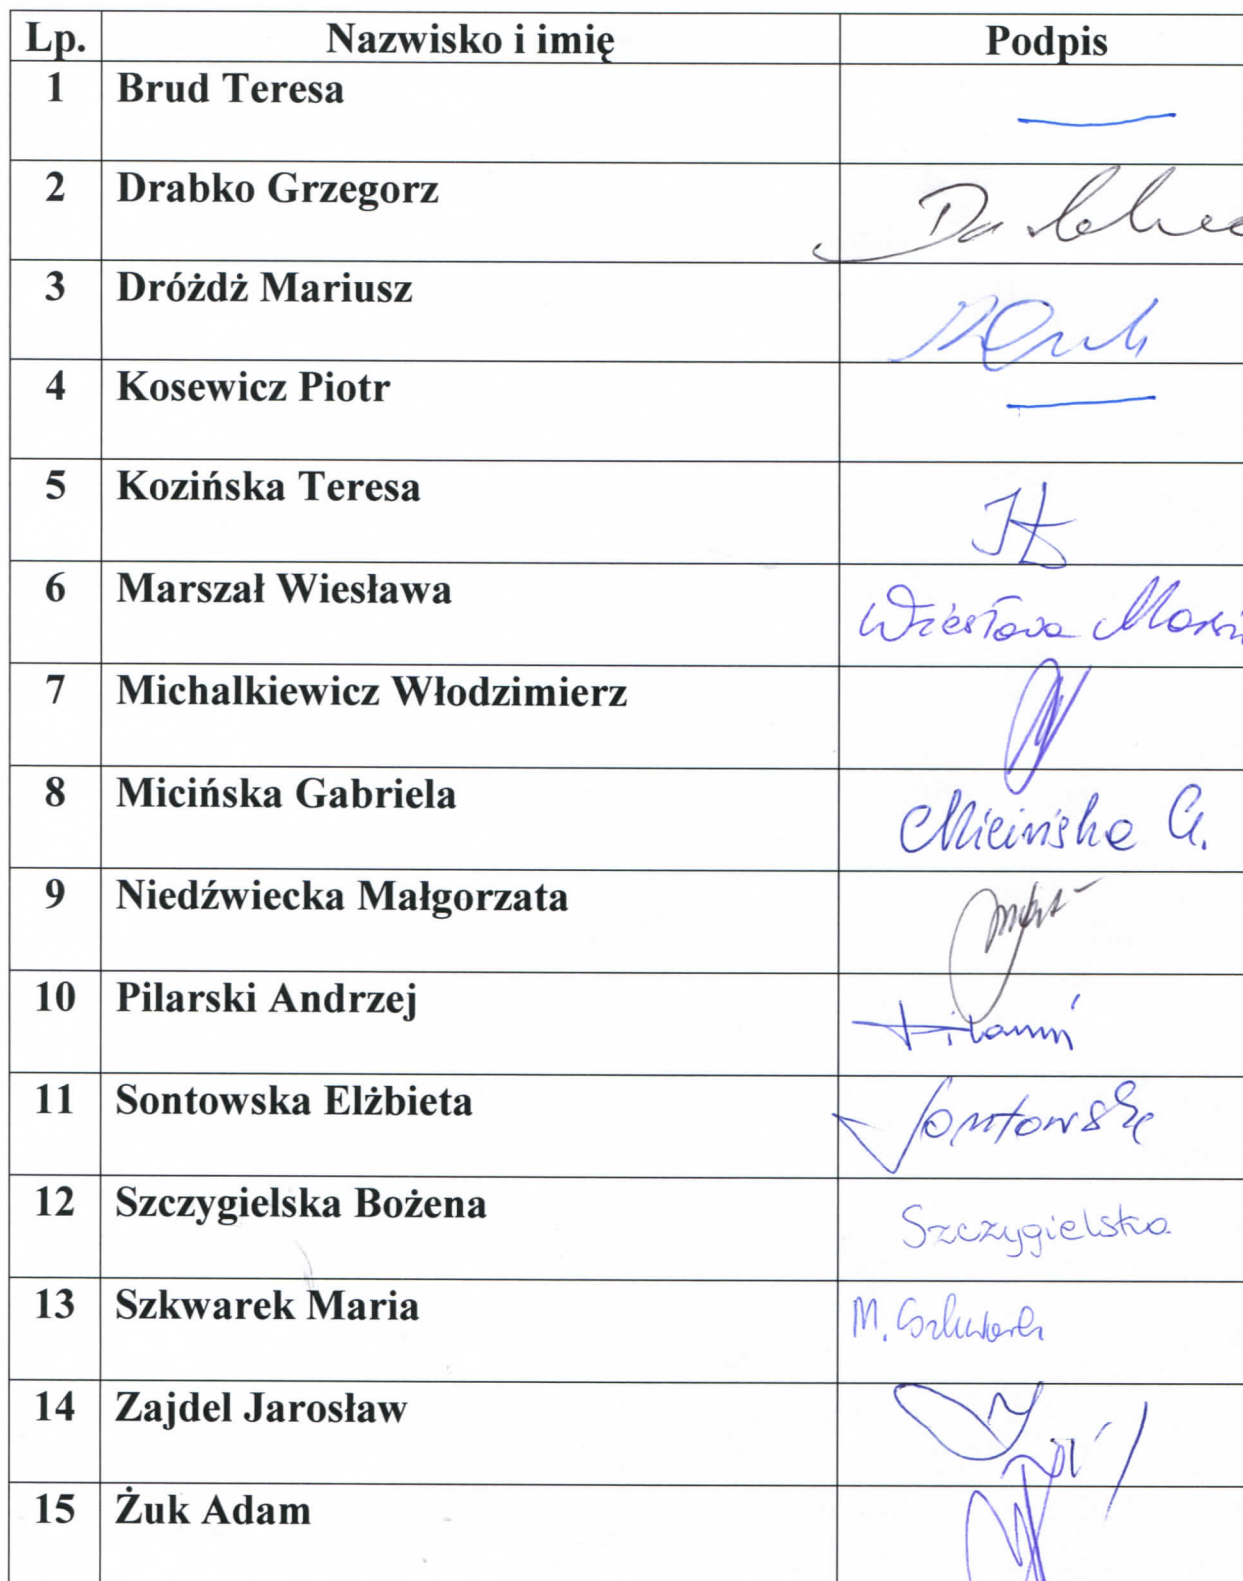 Lp. Nazwisko i imię Podpis
1 Brud Teresa
2 Drabko Grzegorz
3 Dróżdż Mariusz
4 Kosewicz Piotr
5 Kozińska Teresa
6 Marszał Wiesława Wiesława
7 Michalkiewicz Włodzimierz
8 Micińska Gabriela Micińska G.
9 Niedźwiecka Małgorzata
10 Pilarski Andrzej
11 Sontowska Elżbieta Sontowska
12 Szczygielska Bożena Szczygielska
13 Szkwarek Maria M. Szkwarek
14 Zajdel Jarosław
15 Żuk Adam